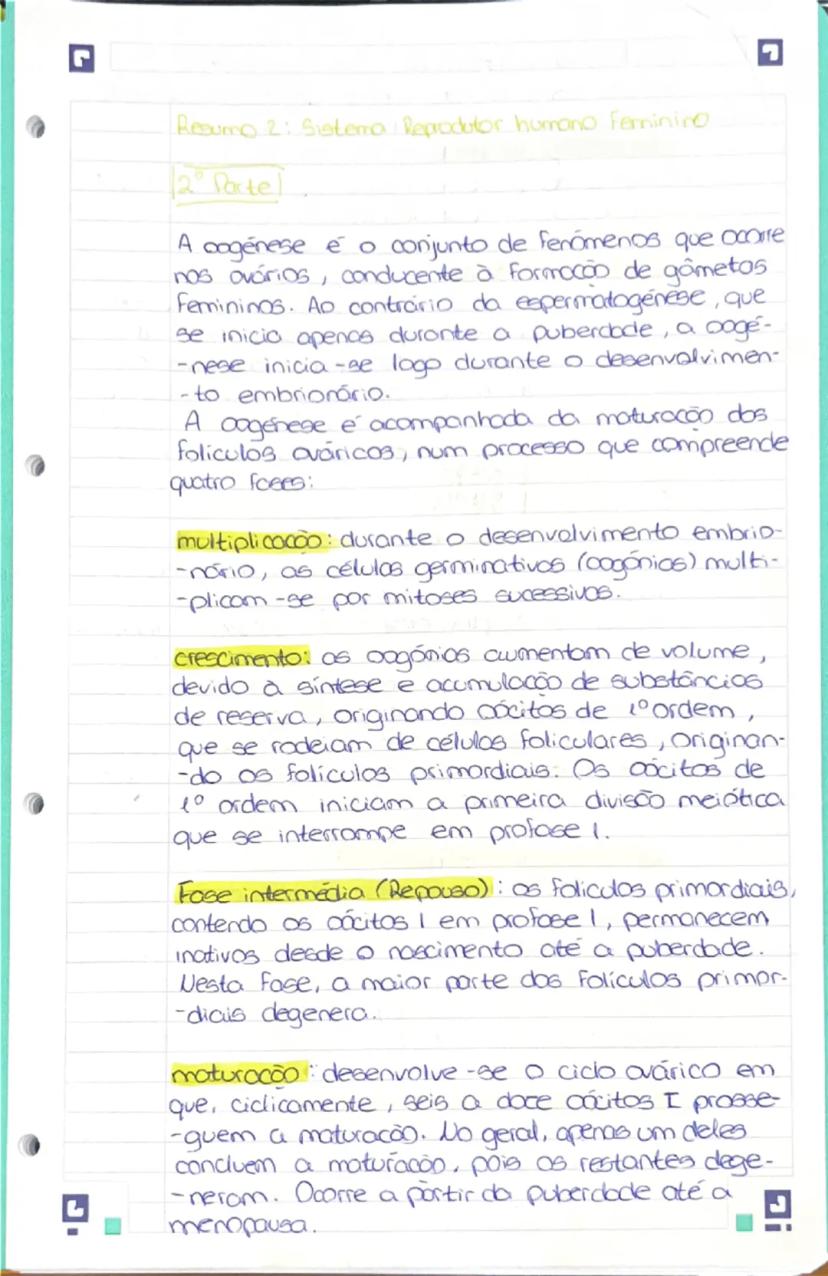 Resumo 2: Sistema Reprodutor humano Feminino
2º Parte
A oogénese é o conjunto de fenómenos que ocorre
nos ovários, conducente à formação de gâmetos
femininos. Ao contrário da espermatogénese, que
se inicia apenas durante a puberdade, a oogé-
-nese inicia-se logo durante o desenvolvimen-
-to embrionário.
A oogénese é acompanhada da maturação dos
folículos ováricos, num processo que compreende
quatro fases:
multiplicação: durante o desenvolvimento embrio-
-nário, as células germinativas (oogónias) multi-
-plicam-se por mitoses sucessivas.
crescimento: as oogónias aumentam de volume,
devido à síntese e acumulação de substâncias
de reserva, originando oócitos de 1º ordem,
que se rodeiam de células foliculares, originan-
-do os folículos primordiais. Os oócitos de
1º ordem iniciam a primeira divisão meiótica
que se interrompe em profase I.
Fase intermédia (Repouso): os folículos primordiais,
contendo os oócitos I em profase I, permanecem
inativos desde o nascimento até a puberdade.
Nesta fase, a maior parte dos folículos primor-
-diais degenera.
maturação: desenvolve-se o ciclo ovárico em
que, ciclicamente, seis a doze oócitos I prosse-
-guem a maturação. No geral, apenas um deles
concluem a maturação, pois os restantes dege-
-neram. Ocorre a pàrtir da puberdade até a
menopausa.